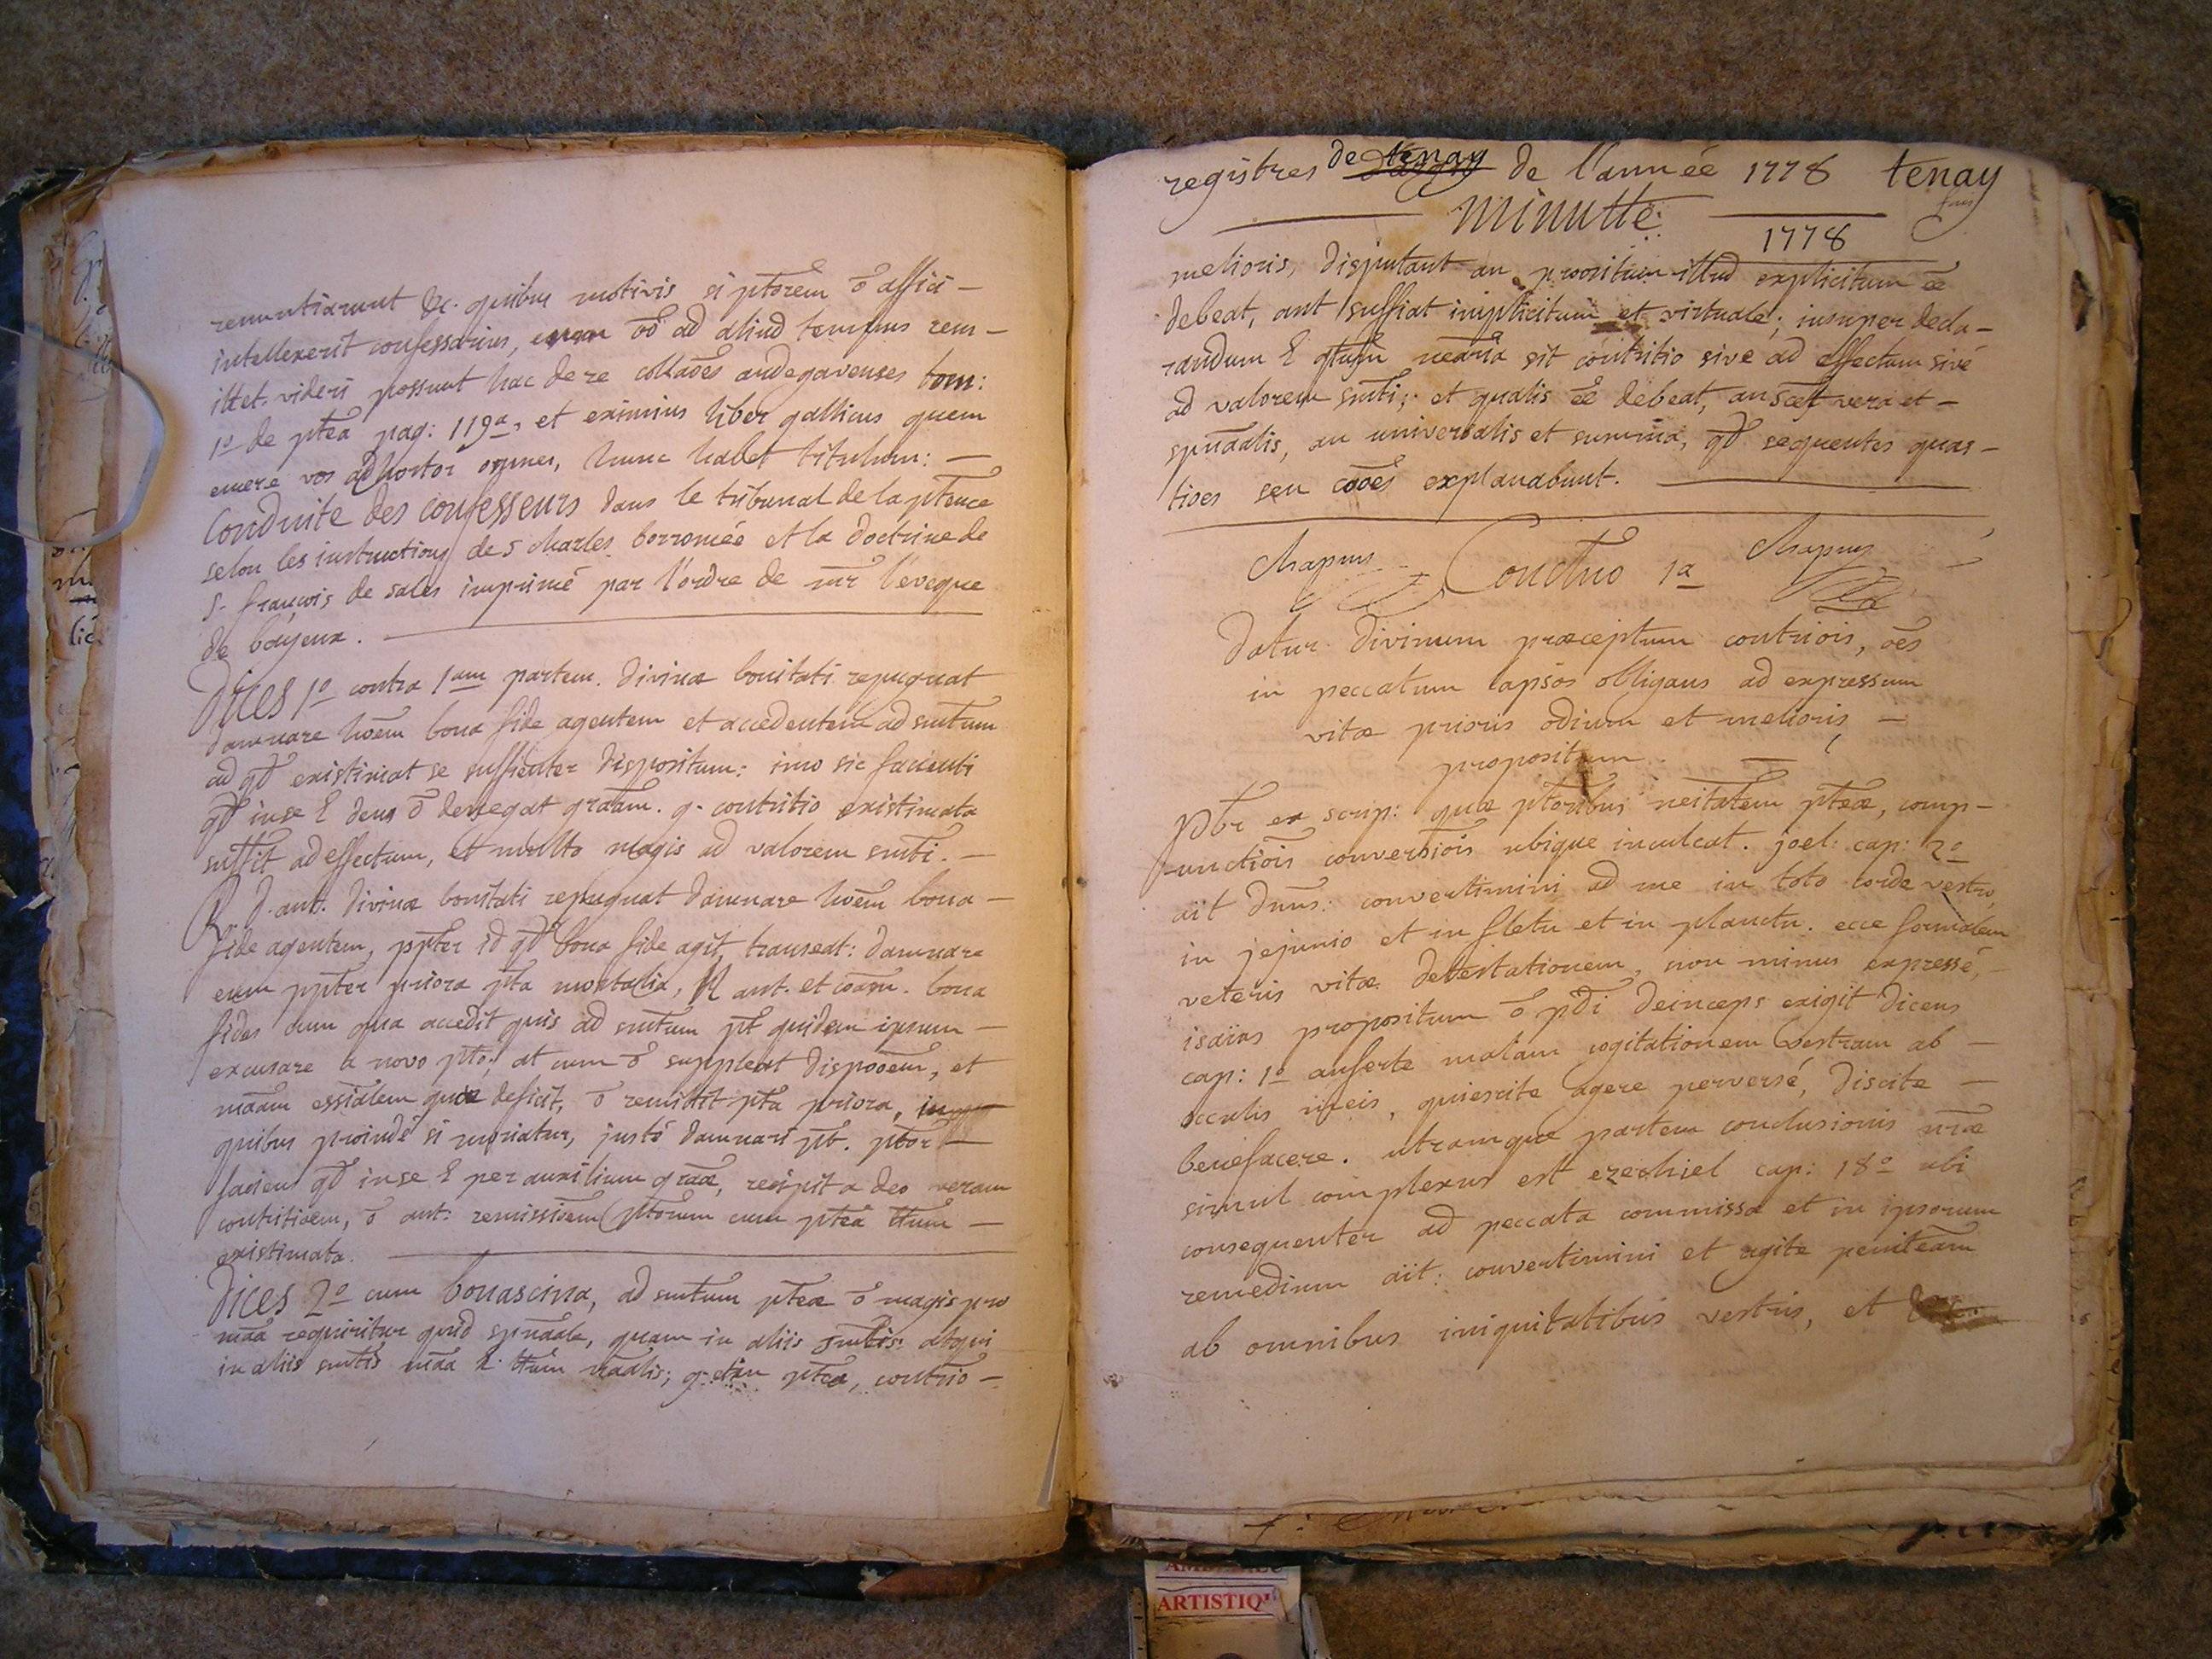 renuntiarunt &c. quibus motivis si ptorem õ affici –
intellexerit confessarius, eum ad aliud tempus rem –
ittet. videri possunt hac de re collaões andegavenses tom:
1º de ptea pag: 119a, et eximius liber gallicus quem
emere vos adhortor omnes, hunc habet titulum: –
Conduite des confesseurs dans le tribunal de la ptence
selon les instructions de s charles borromée et la doctrine de
s. françois de sales imprimé par l'ordre de mr l'eveque
de bayeux.
Dices 1º contra 1am partem. divinæ bonitati repugnat
damnare hoem bona fide agentem et accedentem ad smtum
ad qd existimat se sufficienter dispositum: imo sic facienti
qd in se ē deus õ denegat graam. g. contritio existimata
suffit ad effectum, et multo magis ad valorem smti. –
R. d. ant. divinæ bonitati repugnat damnare hoem bona –
fide agentem, ppter id qd bona fide agit, transeat: damnare
eum ppter priora pta mortalia, N ant. et coam. bona
fides cum qua accedit quis ad smtum pt quidem ipsum –
excusare a novo pto; at cum õ suppleat dispoõem, et
maam essialem quæ deficit, õ remittit pta priora, in
quibus proindè si moriatur, justè damnari pt. ptor –
faciens qd in se ē per auxilium graæ, recipit a deo veram
contritioem, õ aut: remissioem ptorum cum ptea ttum –
existimata.
Dices 2º cum bonascina, ad smtum pteæ õ magis pro
maa requiritur quid spuaale, quam in aliis smtis: atqui
in aliis smtis maa ē ttum raalis; g. etiam ptea, contrio –
registres de tenay de l'année 1778 tenay
minutte
1778
melioris, disputant an propositum illud explicitum ee
debeat, aut suffiat implicitum et virtuale; insuper decla –
randum ē qtum nearia sit contritio sive ad effectum sive
ad valorem smti; et qualis ee debeat, an scet vera et –
spuaalis, an universalis et summa, qd sequentes quæs –
tioes seu cooes explanabunt.
Chapuis Conctuo 1a Chapuis
Datur divinum præceptum contriois, oes
in peccatum lapsos obligans ad expressum
vitæ prioris odium et melioris –
propositum.
Pbr ex scrip: quæ ptoribus neitatem pteæ, comp –
unctiois conversiois ubique inculcat. joel: cap: 2º
ait dnus: convertimini ad me in toto corde vestro,
in jejunio et in fletu et in planctu. ecce formalem
veteris vitæ detestationem, non minus expressé, –
isaïas propositum õ pdi deinceps exigit dicens
cap: 1º auferte malam cogitationem vestram ab –
occulis meis, quiescite agere perversé, discite –
benefacere. utramque partem conclusionis nræ
simul complexus est ezechiel cap: 18º ubi
consequenter ad peccata commissa et in ipsorum
remedium ait: convertimini et agite peniteam
ab omnibus iniquitatibus vestris, et
ARTISTIQ